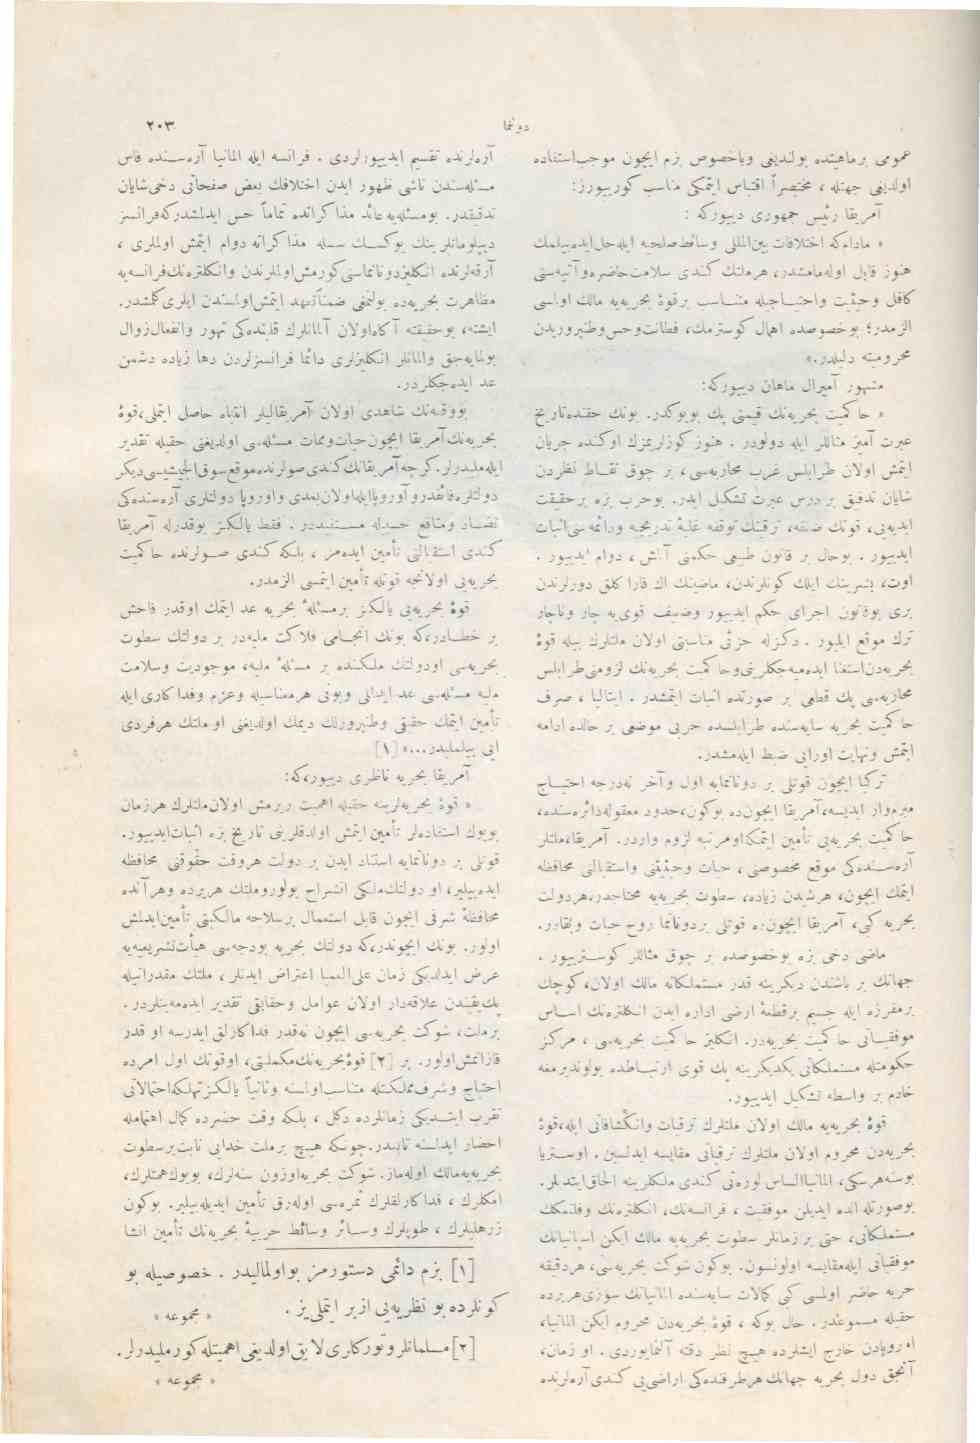 دوننما
٢٠٣
عمومی برماهیتده بولندیغی وباخصوص بزم ایچون موجب‌استفاده
اولدیغی جهتله ، مختصراً اقتباس ایتمکی مناسب کورییورز:
آمریقا رئیس جمهوری دییورکه :
« مادام‌که اختلافات بین‌المللی وسائط‌صلحیه ایله‌حل‌ایده‌بیلمك
هنوز قابل اوله‌مامشدر، هرملتك کندی سلامت‌حاضره‌وآتیه‌سنی
کافل وحیثیت واحتیاجیله متناسب برقوهٔ بحریه‌یه مالك اولمسی
الزمدر؛ بوخصوصده اهمال کوسترمك، فطانت‌وحس‌وطنپروریدن
محرومیته دلیلدر.»
مشهور آمیرال ماهان دییورکه:
« حاکمیت بحریه‌نك قیمتی پك بویوکدر. بونك حقنده‌تاریخ
عبرت آمیز مثاللر ایله دولودر . هنوز کوزلریمزك اوکنده جریان
ایتمش اولان طرابلس غرب محاربه‌سی، بر چوق نقاط نظردن
شایان تدقیق بر درس عبرت تشکیل ایدر. بوحرب بزه برحقیقت
ابدیه‌یی، قوتك ضعفه، ترقینك توقفه غلبهٔ تدریجیه ودائمه‌سنی‌اثبات
ایدییور . بوحال بر قانون طبیعی حکمنی آلمش، دوام ایدییور .
اوت، بشریتك ایلك کونلرندن، ماضینك اك قارا کلق دورلرندن
بری بوقانون اجرای حکم ایدییور وضعیف قوی‌یه چار وناچار
ترك موقع ایلیور. دکزله جزئی مناسبتی اولان ملتلرك بیله قوهٔ
بحریه‌دن‌استغنا ایده‌میه‌جکلرینی‌وحاکمیت بحریه‌نك لزومنی‌طرابلس
محاربه‌سی پك قطعی بر صورتده اثبات ایتمشدر. ایتالیا ، صرف
حاکمیت بحریه سایه‌سنده طرابلسده حربی موضعی بر حالده ادامه
ایتمش ونهایت اورایی ضبط ایله‌مشدر.
ترکیا ایچون قوتلی بر دوننمایه اول وآخر نه‌درجه احتیاج
مبرم‌وار ایدیسه،آمریقا ایچون‌ده بوکون،حدود معقوله‌دائره‌سنده،
حاکمیت بحریه‌یی تأمین ایتمکه‌اومرتبه لزوم واردر. آمریقا،ملتلر
آره‌سنده‌کی موقع مخصوصنی ، حیات وحیثیتنی واستقبالنی محافظه
ایتمك ایچون، هرشیدن زیاده، سطوت بحریه‌یه محتاجدر،هردولت
بحریه کبی، آمریقا ایچون‌ده قوتلی بردوننما روح حیات وبقادر.
ماضی دخی بزه بوخصوصده بر چوق مثاللر کوسترییور .
جهانك بر باشندن دیکرینه قدر مستملکاته مالك اولان، کوچك
برمفرزه ایله جسیم برقطعهٔ ارضی اداره ایدن انکلتره‌نك اساس
موفقیاتی حاکمیت بحریه‌در. انکلیز حاکمیت بحریه‌سی ، مرکز
حکومتله مستملکاتی یکدیکرینه پك قوی ارتباطده بولوندیرمغه
خادم بر واسطه تشکیل ایدییور.
قوهٔ بحریه‌یه مالك اولان ملتلرك ترقیات وانکشافاتی ایله،قوهٔ
بحریه‌دن محروم اولان ملتلرك ترقیاتی مقایسه ایدلسین . اوستریا
بوسنه‌هرسکی، المانیاالساس لورەنی کندی ملکلرینه الحاق‌ایتدیلر.
بوصورتله الده ایدیلن موفقیت ، فرانسه‌نك، انکلتره‌نك وفلمنکك
مستملکاتی، حتی بر زمانلر سطوت بحریه‌یه مالك ایکن اسپانیانك
موفقیاتی ایله‌مقایسه اولونسون. بوکون شوکت بحریه‌سی، هردقیقه
حربه حاضر اولمسی کبی کمالات سایه‌سنده المانیانك سوزی‌هریرده
حقیله مسموعدر. حال بوکه ، قوهٔ بحریه‌دن محروم ایکن المانیا،
اوروپادن خارج ایشلرده هیچ نظر دقته آلنمایوردی. او زمان،
آنجق دول بحریه جهانك هرطرفنده‌کی اراضی‌یی کندی آره‌لرنده
آره‌لرنده تقسیم ایدییورلردی . فرانسه ایله المانیا آره‌سنده فاس
مسئله‌سندن ناشی ظهور ایدن اختلافك بعض صفحاتی دخی‌شایان
تدقیقدر. بومسئله‌یه عائد مذاکراتده تماماً حس ایدلمشدرکه‌فرانسز
دیپلوماتلرینك یوکسك سسله مذاکراته دوام ایتمش اولملری ،
آرقه‌لرنده انکلیزدوننماسنی‌کورمش‌اولملرندن وانکلتره‌نك‌فرانسه‌یه
مظاهرت بحریه‌ده بولنمغی ضمناًتعهد ایتمش‌اولمسندن ایلری‌کلمشدر.
ایشته، بوحقیقته آکاه‌اولان آلمانلرك قلبنده‌کی تهور وانفعال‌زوال
بولمایه‌جق والمانلر انکلیزلری دائما فرانسزلردن دها زیاده دشمن
عد ایده‌جکلردر.
بووقعه‌نك شاهدی اولان آمریقالیلر انتباه حاصل ایتملی،قوهٔ
بحریه‌نك‌آمریقا ایچون‌حیات‌وممات مسئله‌سی اولدیغنی حقیله تقدیر
ایله‌ملیدرلر.کرچه‌آمریقانك‌کندی صولرنده‌موقع‌سوق‌الجیشیسی‌دیکر
دولتلره‌فائقدروآوروپاایله‌اولان‌بعدی واوروپا دولتلری آره‌سنده‌کی
تضاد ومنافع جدله مستفیددر. فقط یالکز بوقدرله آمریقا
کندی استقبالنی تأمین ایده‌مز ، بلکه کندی صولرنده حاکمیت
بحریه‌یی اولانجه قوتله تأمین ایتمسی الزمدر.
قوهٔ بحریه‌یی یالکز برمسئلهٔ بحریه عد ایتمك اوقدر فاحش
بر خطادر،که بونك انجامی فلاکت ملیه‌در بر دولتك سطوت
بحریه‌سی اودولتك ملکنده بر مسئلهٔ ملیه، موجودیت وسلامت
ملیه مسئله‌سی عد ایدلملی وبونی هرمعناسیله وعزم وفداکاری ایله
تأمین ایتمك حقیقی وطنپرورلك دیمك اولدیغنی او ملتك هرفردی
ایی بیلملیدر...» [١]
آمریقا بحریه ناظری دییور،که:
« قوهٔ بحریه‌لرینه حقیله اهمیت ویرمش اولان‌ملتلرك هرزمان
بویوك استفاده‌لر تأمین ایتمش اولدقلرینی تاریخ بزه اثبات‌ایدییور.
قوتلی بر دوننمایه استناد ایدن بر دولت هروقت حقوقنی محافظه
ایده‌بیلیر، او دولتك‌ملکی انشراح بولور‌وملتك هریرده وهرآنده
محافظهٔ شرفی ایچون قابل استعمال برسلاحه مالکیتی تأمین‌ایدلمش
اولور. بونك ایچوندر،که دولتك بحریه بودجه‌سی هیأت‌تشریعیه‌یه
عرض ایدلدیکی زمان علی‌العمیا اعتراض ایدنلر ، ملتك مقدراتیله
پك‌یقیندن علاقه‌دار اولان عوامل وحقایقی تقدیر ایده‌مه‌ینلردر.
برملت، شوکت بحریه‌سی ایچون نه‌قدر فداکارلق ایدرسه او قدر
قازانمش‌اولور. بر [٢] قوهٔ‌بحریه‌نك‌مکملیتی، اوقوتك اول امرده
احتیاج وشرف‌مملکتله متناسب‌اولمسنه وثانیاً یالکز‌تهلکه‌احتمالاتی
تقرب ایتدیکی زمانلرده دکل ، بلکه وقت حضرده کمال اهتمامله
احضار ایدلمسنه تابعدر.چونکه هیچ برملت خدایی نابت‌برسطوت
بحریه‌یه‌مالك اوله‌ماز. شوکت بحریه‌اوزون سنه‌لرك، بویوك‌همتلرك،
امکلرك ، فداکارلقلرك ثمره‌سی اوله‌رق تأمین ایدیله‌بیلیر. بوکون
زرهلیلرك ، طوپلرك وسائر وسائط حربیهٔ بحریه‌نك تأمین انشا
[١] بزم دائمی دستورمز بواولمالیدر . خصوصیله بو
کونلرده بو نظریه‌یی ازبر ایتملی‌یز .    « مجموعه »
[٢] مسلمانلر وتورکلری لایق‌اولدیغی‌اهمیتله‌کورملیدرلر.
« مجموعه »